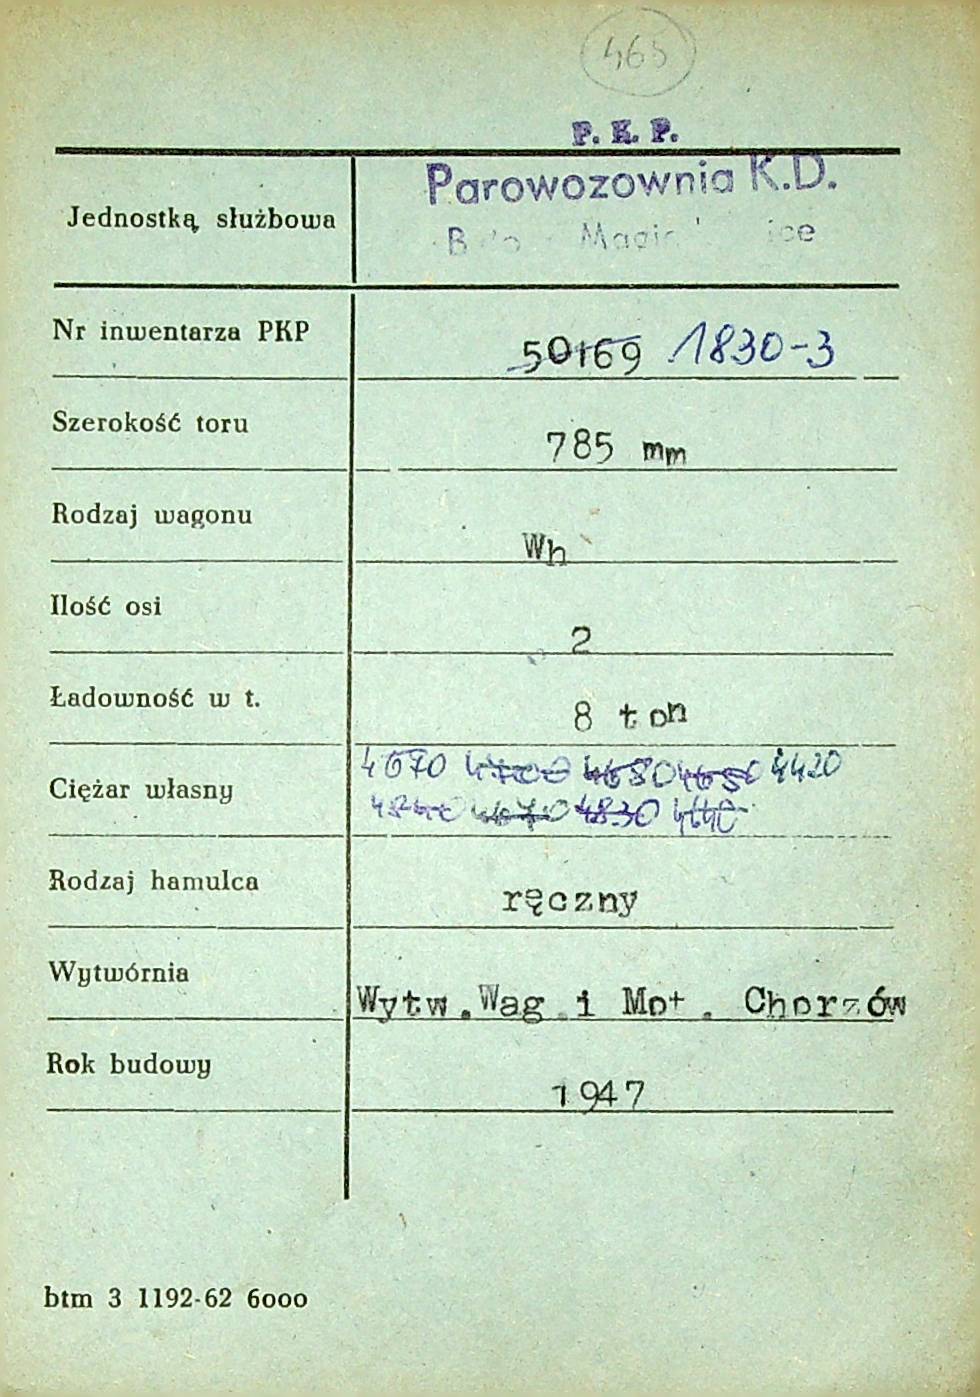 465
P. K. P.
Parowozownia K.D.
Jednostką służbowa
Nr inwentarza PKP 50169 1830-3
Szerokość toru 785 mm
Rodzaj wagonu Wh
Ilość osi 2
Ładowność w t. 8 ton
4670 4700 4680 4650 4420
Ciężar własny
4840 4670 4830 4440
Rodzaj hamulca ręczny
Wytwórnia Wytw. Wag. i Mot. Chorzów
Rok budowy 1947
btm 3 1192-62 6000